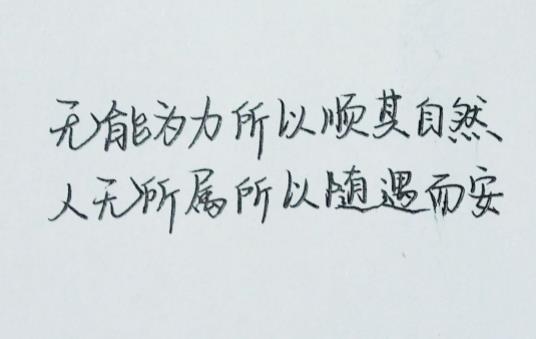 无能为力所以顺其自然
人无所属所以随遇而安